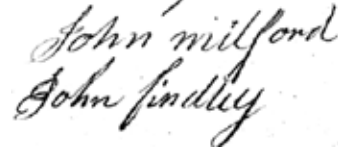 John milford
John findley